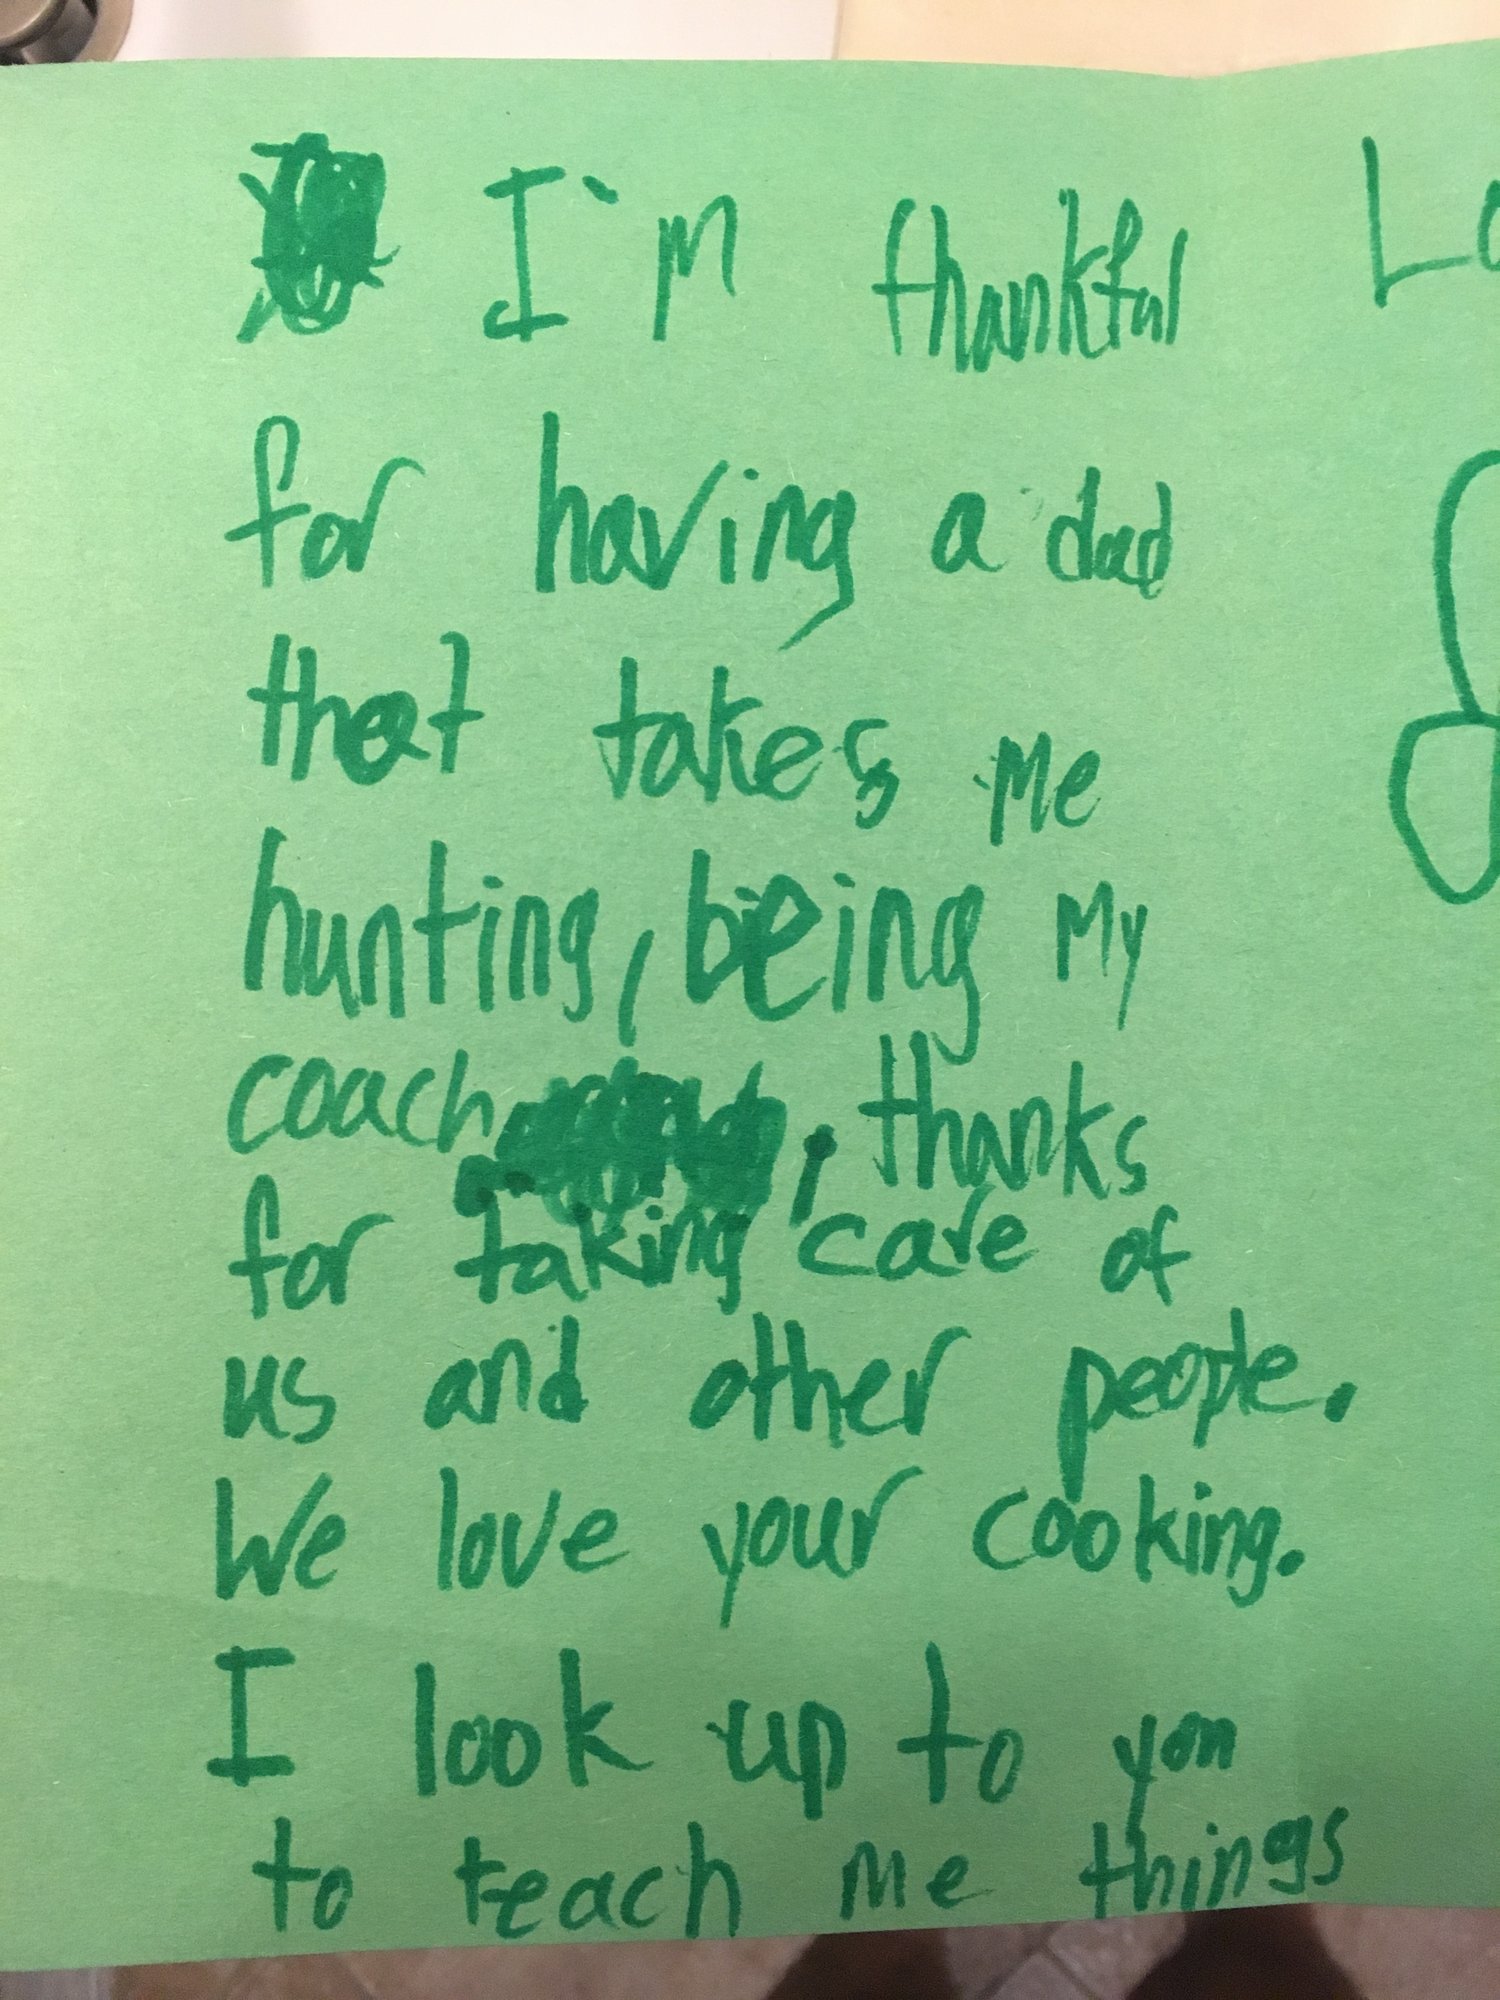 I'm thankful
for having a dad
that takes me
hunting, being my
coach, thanks
for taking care of
us and other people.
We love your cooking.
I look up to you
to teach me things